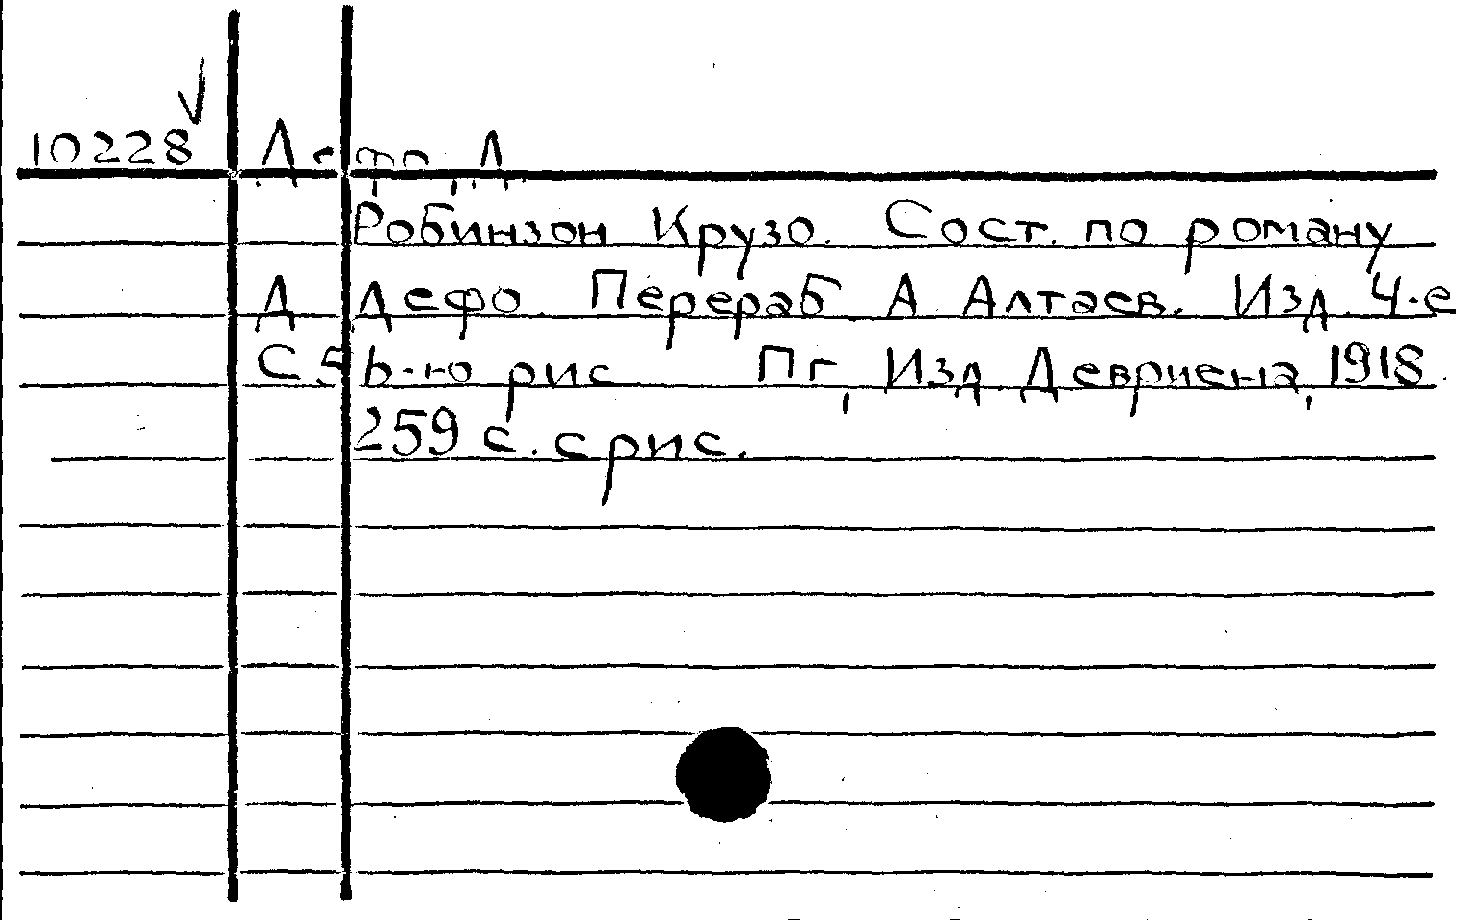 10228 Дефо, Д.
Робинзон Крузо. Сост. по роману
Д. Дефо. Перераб. А. Алтаев. Изд. 4-е
С рис. Пг., Изд. Девриена, 1918.
259 с. с рис.